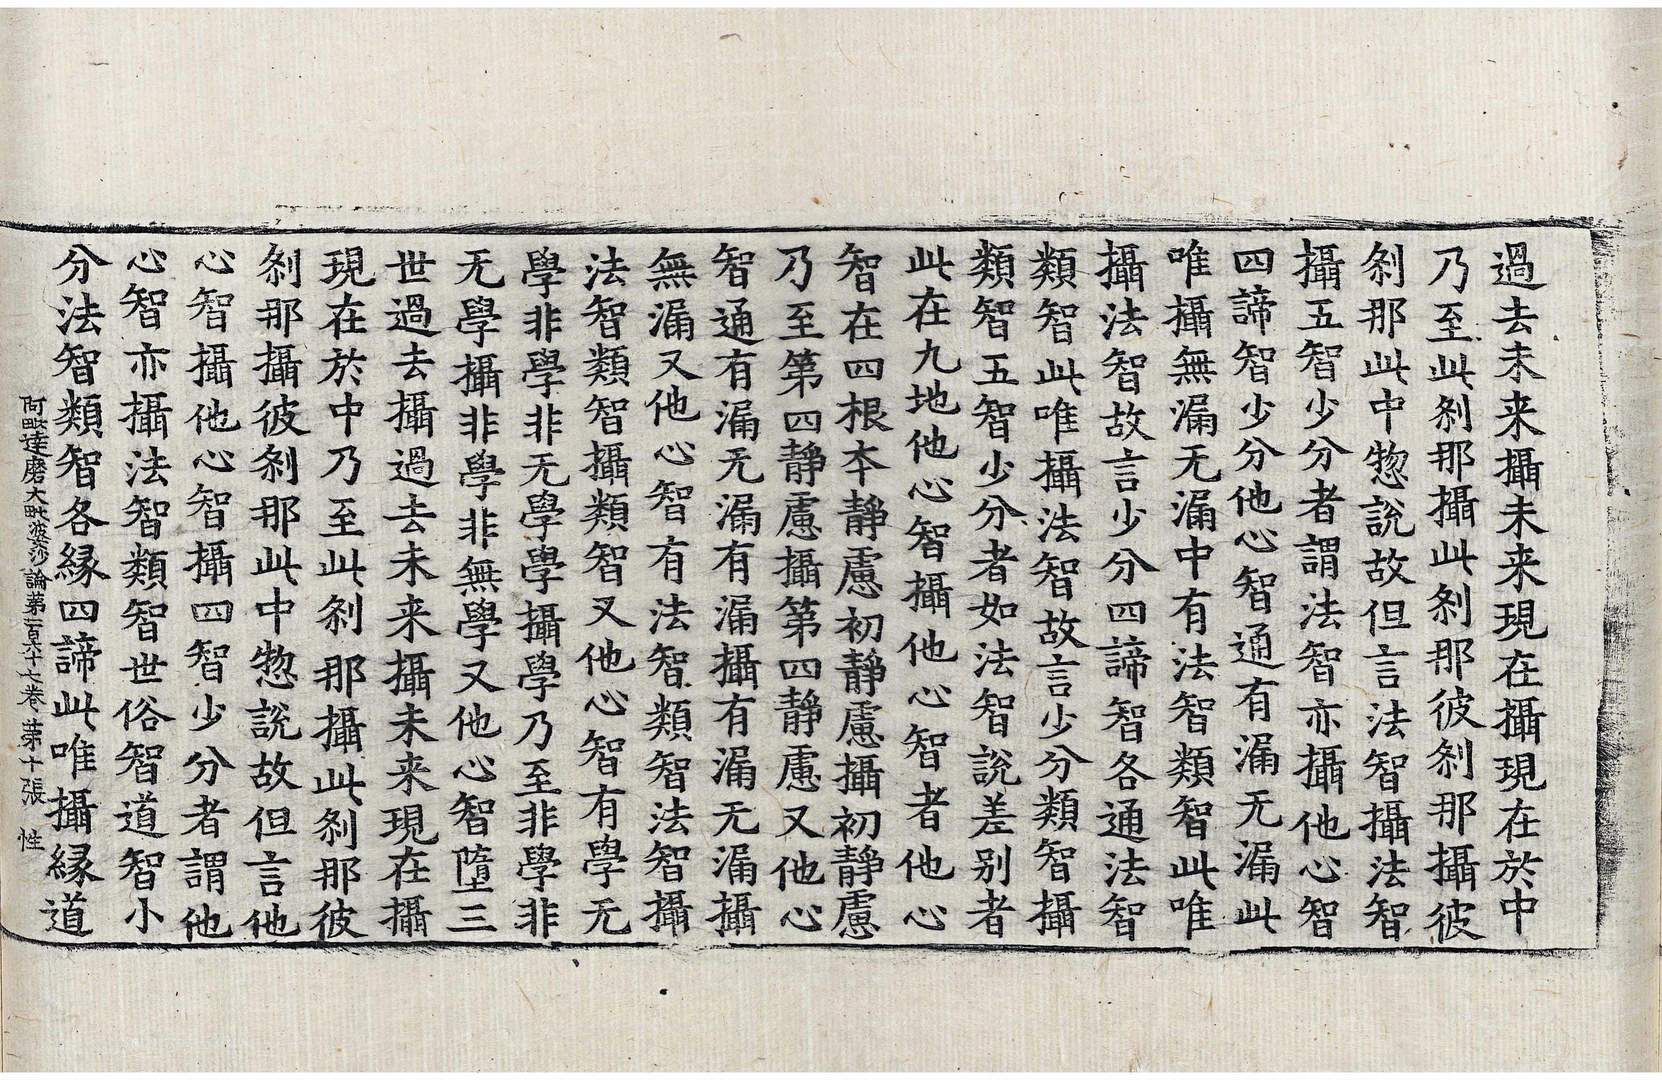 過去未来攝未来現在攝現在於中
乃至此刹那攝此刹那彼刹那攝彼
刹那此中惣說故但言法智攝法智
攝五智少分者謂法智亦攝他心智
四諦智少分他心智通有漏无漏此
唯攝無漏无漏中有法智類智此唯
攝法智故言少分四諦智各通法智
類智此唯攝法智故言少分類智攝
類智五智少分者如法智說差别者
此在九地他心智攝他心智者他心
智在四根本靜慮初靜慮攝初靜慮
乃至第四靜慮攝第四靜慮又他心
智通有漏无漏有漏攝有漏无漏攝
無漏又他心智有法智類智法智攝
法智類智攝類智又他心智有學无
學非學非无學學攝學乃至非學非
无學攝非學非無學又他心智墮三
世過去攝過去未来攝未来現在攝
現在於中乃至此刹那攝此刹那彼
刹那攝彼刹那此中惣說故但言他
心智攝他心智攝四智少分者謂他
心智亦攝法智類智世俗智道智小
分法智類智各縁四諦此唯攝縁道
阿毗達磨大毗婆沙論第一百六十七卷 第十張 性